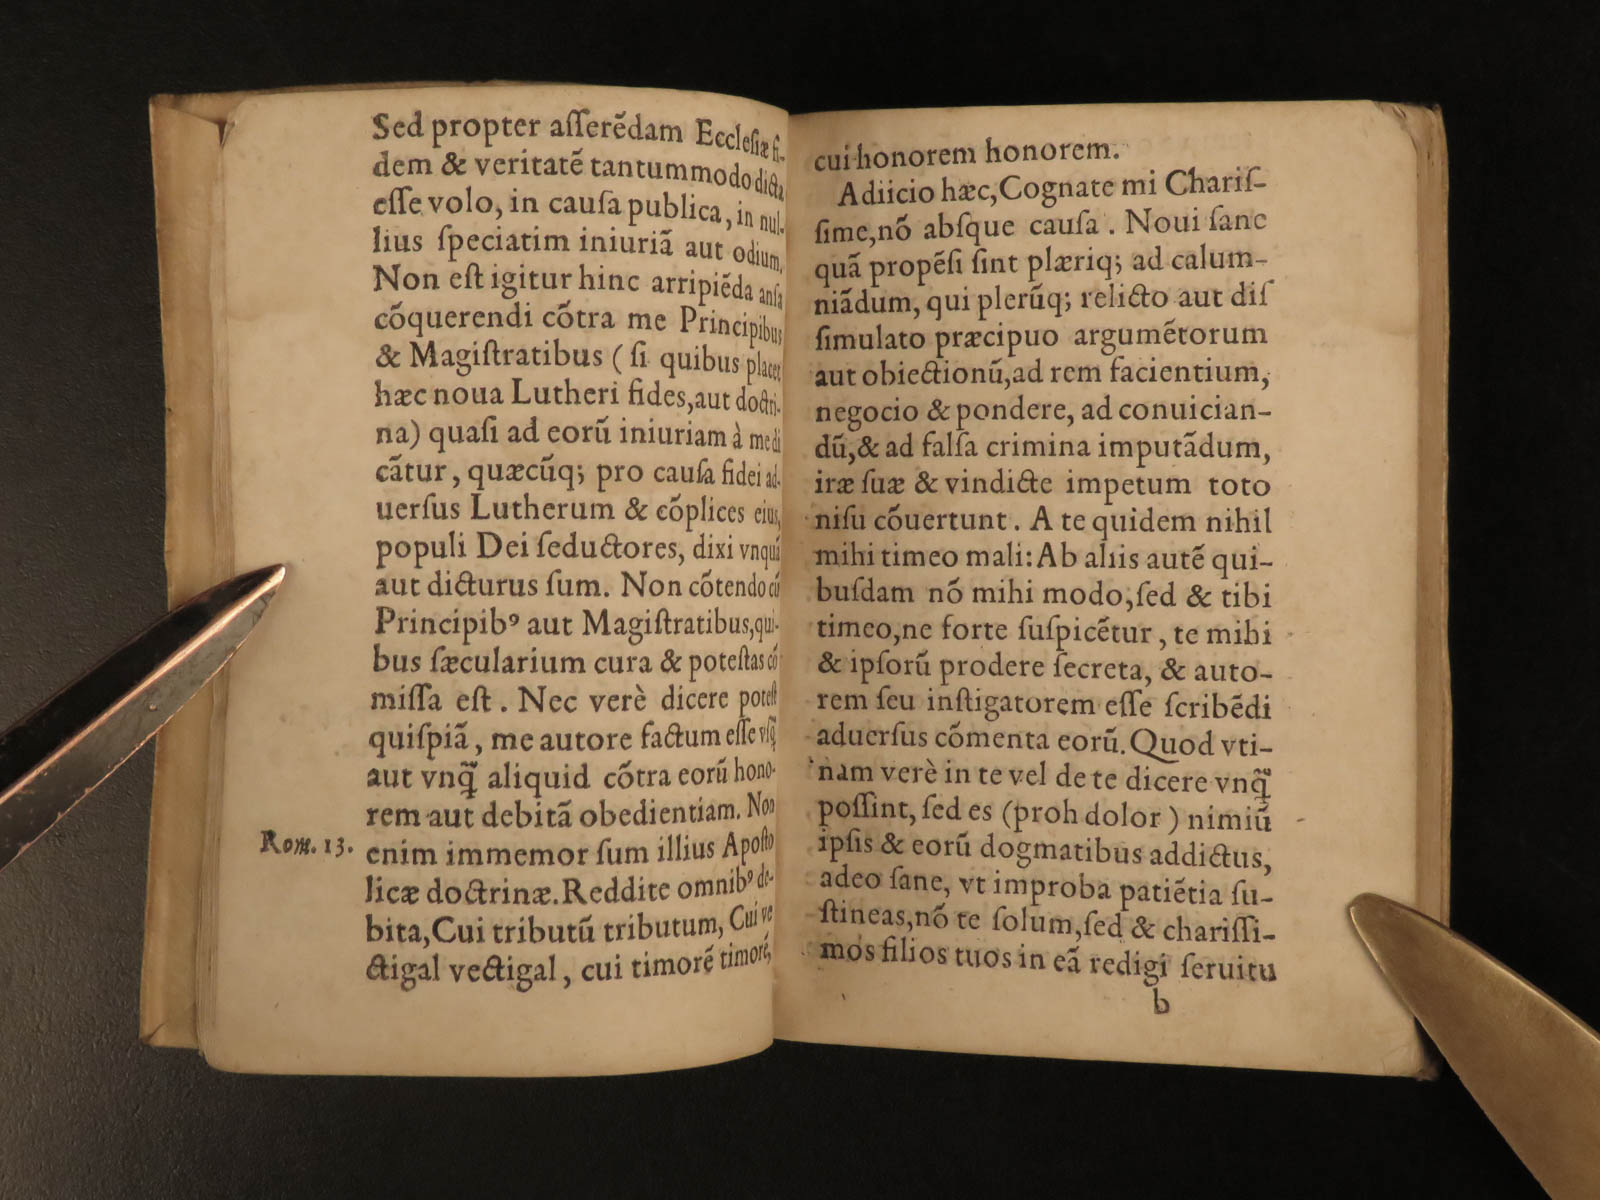 Sed propter aſſerēdam Eccleſiæ fi-
dem & veritatē tantummodo dicta
eſſe volo, in cauſa publica, in nul-
lius ſpeciatim iniuriā aut odium,
Non eſt igitur hinc arripiēda anſa
cōquerendi cōtra me Principibus
& Magiſtratibus ( ſi quibus placet
hæc noua Lutheri fides, aut doctri-
na) quaſi ad eorū iniuriam à me di
cātur, quæcūq; pro cauſa fidei ad-
uerſus Lutherum & cōplices eius,
populi Dei ſeductores, dixi vnquā
aut dicturus ſum. Non cōtendo cū
Principibꝰ aut Magiſtratibus, qui-
bus ſæcularium cura & poteſtas cō
miſſa eſt. Nec verè dicere poteſt
quiſpiā, me autore factum eſſe vſq̄
aut vnq̄ aliquid cōtra eorū hono-
rem aut debitā obedientiam. Non
Rom. 13. enim immemor ſum illius Apoſto
licæ doctrinæ. Reddite omnibꝰ de-
bita, Cui tributū tributum, Cui ve
ctigal vectigal, cui timorē timorē,
cui honorem honorem.
Adiicio hæc, Cognate mi Chariſ-
ſime, nō abſque cauſa. Noui ſane
quā propēſi ſint plæriq; ad calum-
niādum, qui plerūq; relicto aut diſ
ſimulato præcipuo argumētorum
aut obiectionū, ad rem facientium,
negocio & pondere, ad conuician-
dū, & ad falſa crimina imputādum,
iræ ſuæ & vindicte impetum toto
niſu cōuertunt. A te quidem nihil
mihi timeo mali: Ab aliis autē qui-
buſdam nō mihi modo, ſed & tibi
timeo, ne forte ſuſpicētur, te mihi
& ipſorū prodere ſecreta, & auto-
rem ſeu inſtigatorem eſſe ſcribēdi
aduerſus cōmenta eorū. Quod vti-
nam verè in te vel de te dicere vnq̄
poſſint, ſed es (proh dolor) nimiū
ipſis & eorū dogmatibus addictus,
adeo ſane, vt improba patiētia ſu-
ſtineas, nō te ſolum, ſed & chariſſi-
mos filios tuos in eā redigi ſeruitu
b